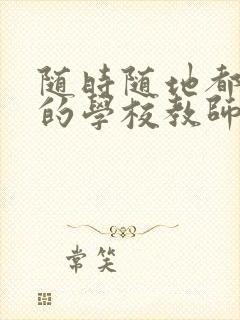 随時随地都
的學校教師
常笑